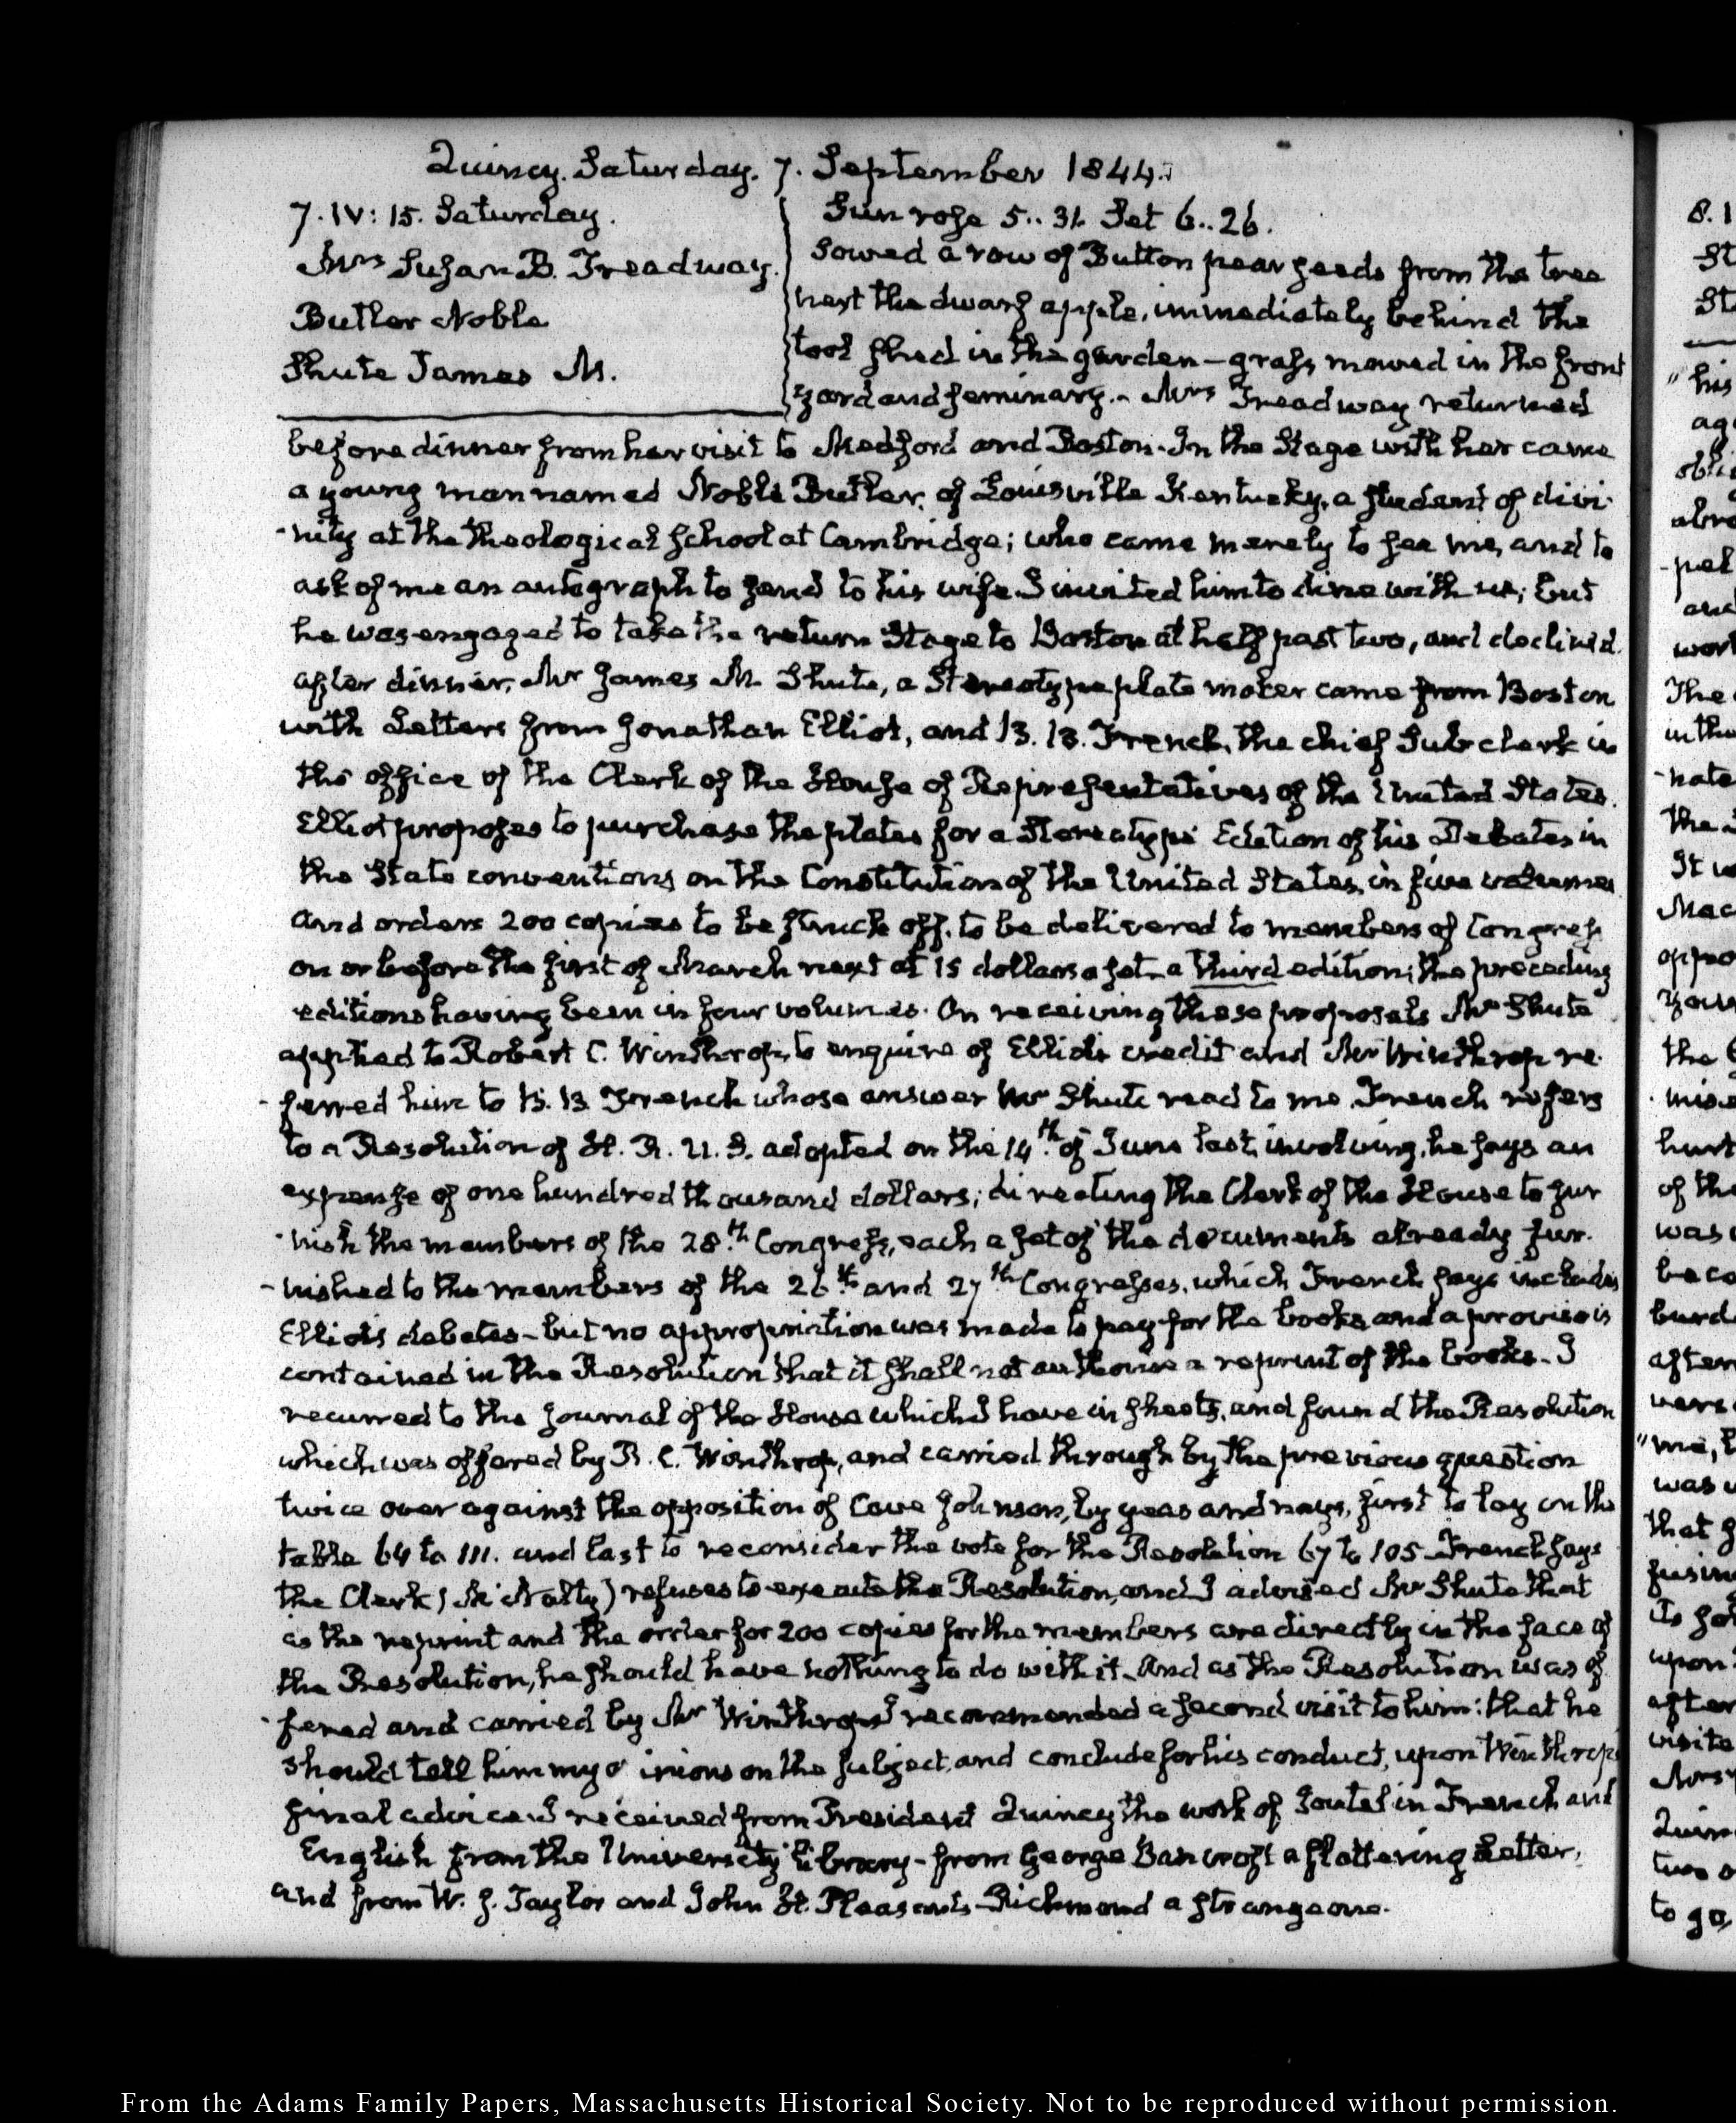 Quincy. Saturday. 7. September 1844.
7. IV: 15. Saturday.
Mrs Susan B. Treadway.
Butler Noble
Shute James M.
Sun rose 5..31. Set 6..26.
Sowed a row of Button pear seeds from the tree
next the dwarf apple, immediately behind the
tool shed in the garden — grass mowed in the front
yard and seminary.- Mrs Treadway returned
before dinner from her visit to Medford and Boston. In the Stage with her came
a young man named Noble Butler, of Louisville Kentucky, a student of divi-
-nity at the theological school at Cambridge; who came merely to see me, and to
ask of me an autograph to send to his wife. I invited him to dine with us; but
he was engaged to take the return Stage to Boston at half past two, and declined.
after dinner, Mr James M. Shute, a Stereotype plate maker came from Boston
with Letters from Jonathan Elliot, and B. B. French, the chief Sub clerk in
the office of the Clerk of the House of Representatives of the United States.
Elliot proposes to purchase the plates for a Stereotype Edition of his Debates in
the State conventions on the Constitution of the United States, in five volumes
and orders 200 copies to be struck off, to be delivered to members of Congress
on or before the first of March next at 15 dollars a set — a third edition; the preceding
editions having been in four volumes. On receiving these proposals Mr Shute
applied to Robert C. Winthrop, to enquire of Elliots credit and Mr Winthrop re-
-ferred him to B. B. French whose answer Mr Shute read to me. French refers
to a Resolution of H. R. U. S. adopted on the 14th of June last, involving, he says an
expense of one hundred thousand dollars; directing the Clerk of the House to fur
-nish the members of the 28th Congress, each a set of the documents already fur-
-nished to the members of the 26th and 27th Congresses, which French says includes
Elliots debates — but no appropriation was made to pay for the books and a proviso is
contained in the Resolution that it shall not authorise a reprint of the books. I
recurred to the Journal of the House which I have in sheets, and found the Resolution
which was offered by R. C. Winthrop, and carried through by the previous question
twice over against the opposition of Cave Johnson, by yeas and nays, first to lay on the
table 64 to 111. and last to reconsider the vote for the Resolution 67 to 105. French says
the Clerk (McNulty) refuses to execute the Resolution, and I advised Mr Shute that
as the reprint and the order for 200 copies for the members are directly in the face of
the Resolution, he should have nothing to do with it. And as the Resolution was of
-fered and carried by Mr Winthrop I recommended a second visit to him: that he
should tell him my opinions on the subject, and conclude for his conduct, upon Winthrop
final advice. I received from President Quincy the work of Joutel in French and
English from the University Library — from George Bancroft a flattering Letter,
and from W. J. Taylor and John H. Pleasants — Richmond a strange one.
From the Adams Family Papers, Massachusetts Historical Society. Not to be reproduced without permission.